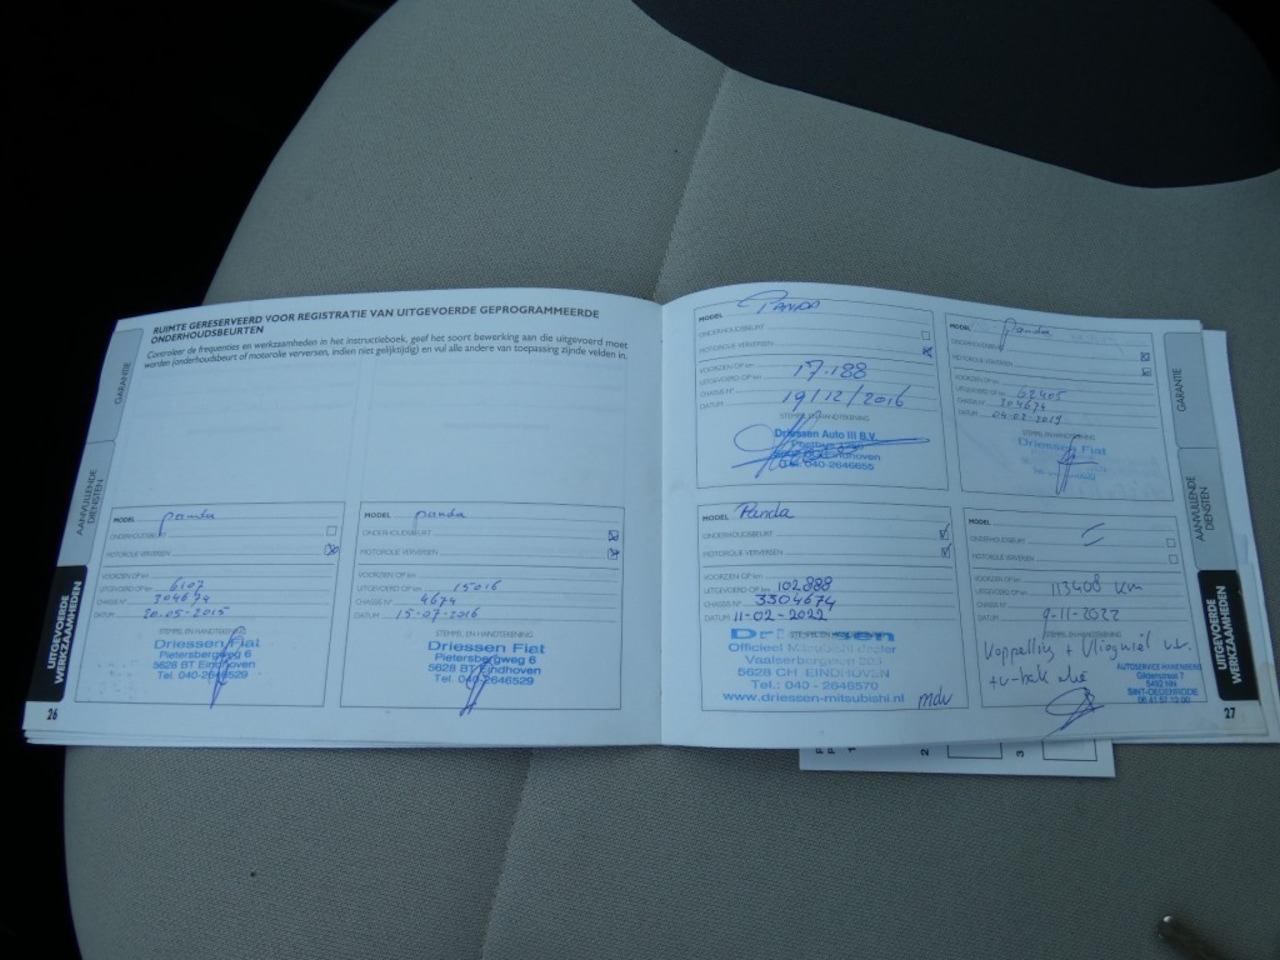 RUIMTE GERESERVEERD VOOR REGISTRATIE VAN UITGEVOERDE GEPROGRAMMEERDE
ONDERHOUDSBEURTEN
Controleer de frequenties en werkzaamheden in het instructieboek, geef het soort bewerking aan die uitgevoerd moet
worden (onderhoudsbeurt of motorolie verversen, indien niet gelijktijdig) en vul alle andere van toepassing zijnde velden in.
GARANTIE
AANVULLENDE
DIENSTEN
UITGEVOERDE
WERKZAAMHEDEN
26
MODEL panda
ONDERHOUDSBEURT
MOTOROLIE VERVERSEN
VOORZIEN OP km
UITGEVOERD OP km 6107
CHASSIS N° 304674
DATUM 20-05-2015
STEMPEL EN HANDTEKENING
Driessen Fiat
Pietersbergweg 6
5628 BT Eindhoven
Tel. 040-2646529
MODEL panda
ONDERHOUDSBEURT
MOTOROLIE VERVERSEN
VOORZIEN OP km
UITGEVOERD OP km 15016
CHASSIS N° 4674
DATUM 15-07-2016
STEMPEL EN HANDTEKENING
Driessen Fiat
Pietersbergweg 6
5628 BT Eindhoven
Tel. 040-2646529
MODEL PANDA
ONDERHOUDSBEURT
MOTOROLIE VERVERSEN
VOORZIEN OP km 17.188
UITGEVOERD OP km
CHASSIS N° 19/12/2016
DATUM
STEMPEL EN HANDTEKENING
Driessen Auto III B.V.
Eindhoven
Tel. 040-2646655
MODEL Panda
ONDERHOUDSBEURT
MOTOROLIE VERVERSEN
VOORZIEN OP km
UITGEVOERD OP km 62405
CHASSIS N° 304674
DATUM 04-02-2019
STEMPEL EN HANDTEKENING
Driessen Fiat
MODEL Panda
ONDERHOUDSBEURT
MOTOROLIE VERVERSEN
VOORZIEN OP km
UITGEVOERD OP km 102.888
CHASSIS N° 3304674
DATUM 11-02-2022
STEMPEL EN HANDTEKENING
Driessen
Officieel Mitsubishi dealer
Vaalserbergweg
5628 CH EINDHOVEN
Tel.: 040 - 2646570
www.driessen-mitsubishi.nl
mdv
MODEL
ONDERHOUDSBEURT
MOTOROLIE VERVERSEN
VOORZIEN OP km
UITGEVOERD OP km 113408 km
CHASSIS N°
DATUM 9-11-2022
STEMPEL EN HANDTEKENING
Koppeling + Vliegwiel
AUTOSERVICE
Gildenstraat 7
5492 NN
SINT-OEDENRODE
06 41 57 12 00
GARANTIE
AANVULLENDE
DIENSTEN
UITGEVOERDE
WERKZAAMHEDEN
27
2
3